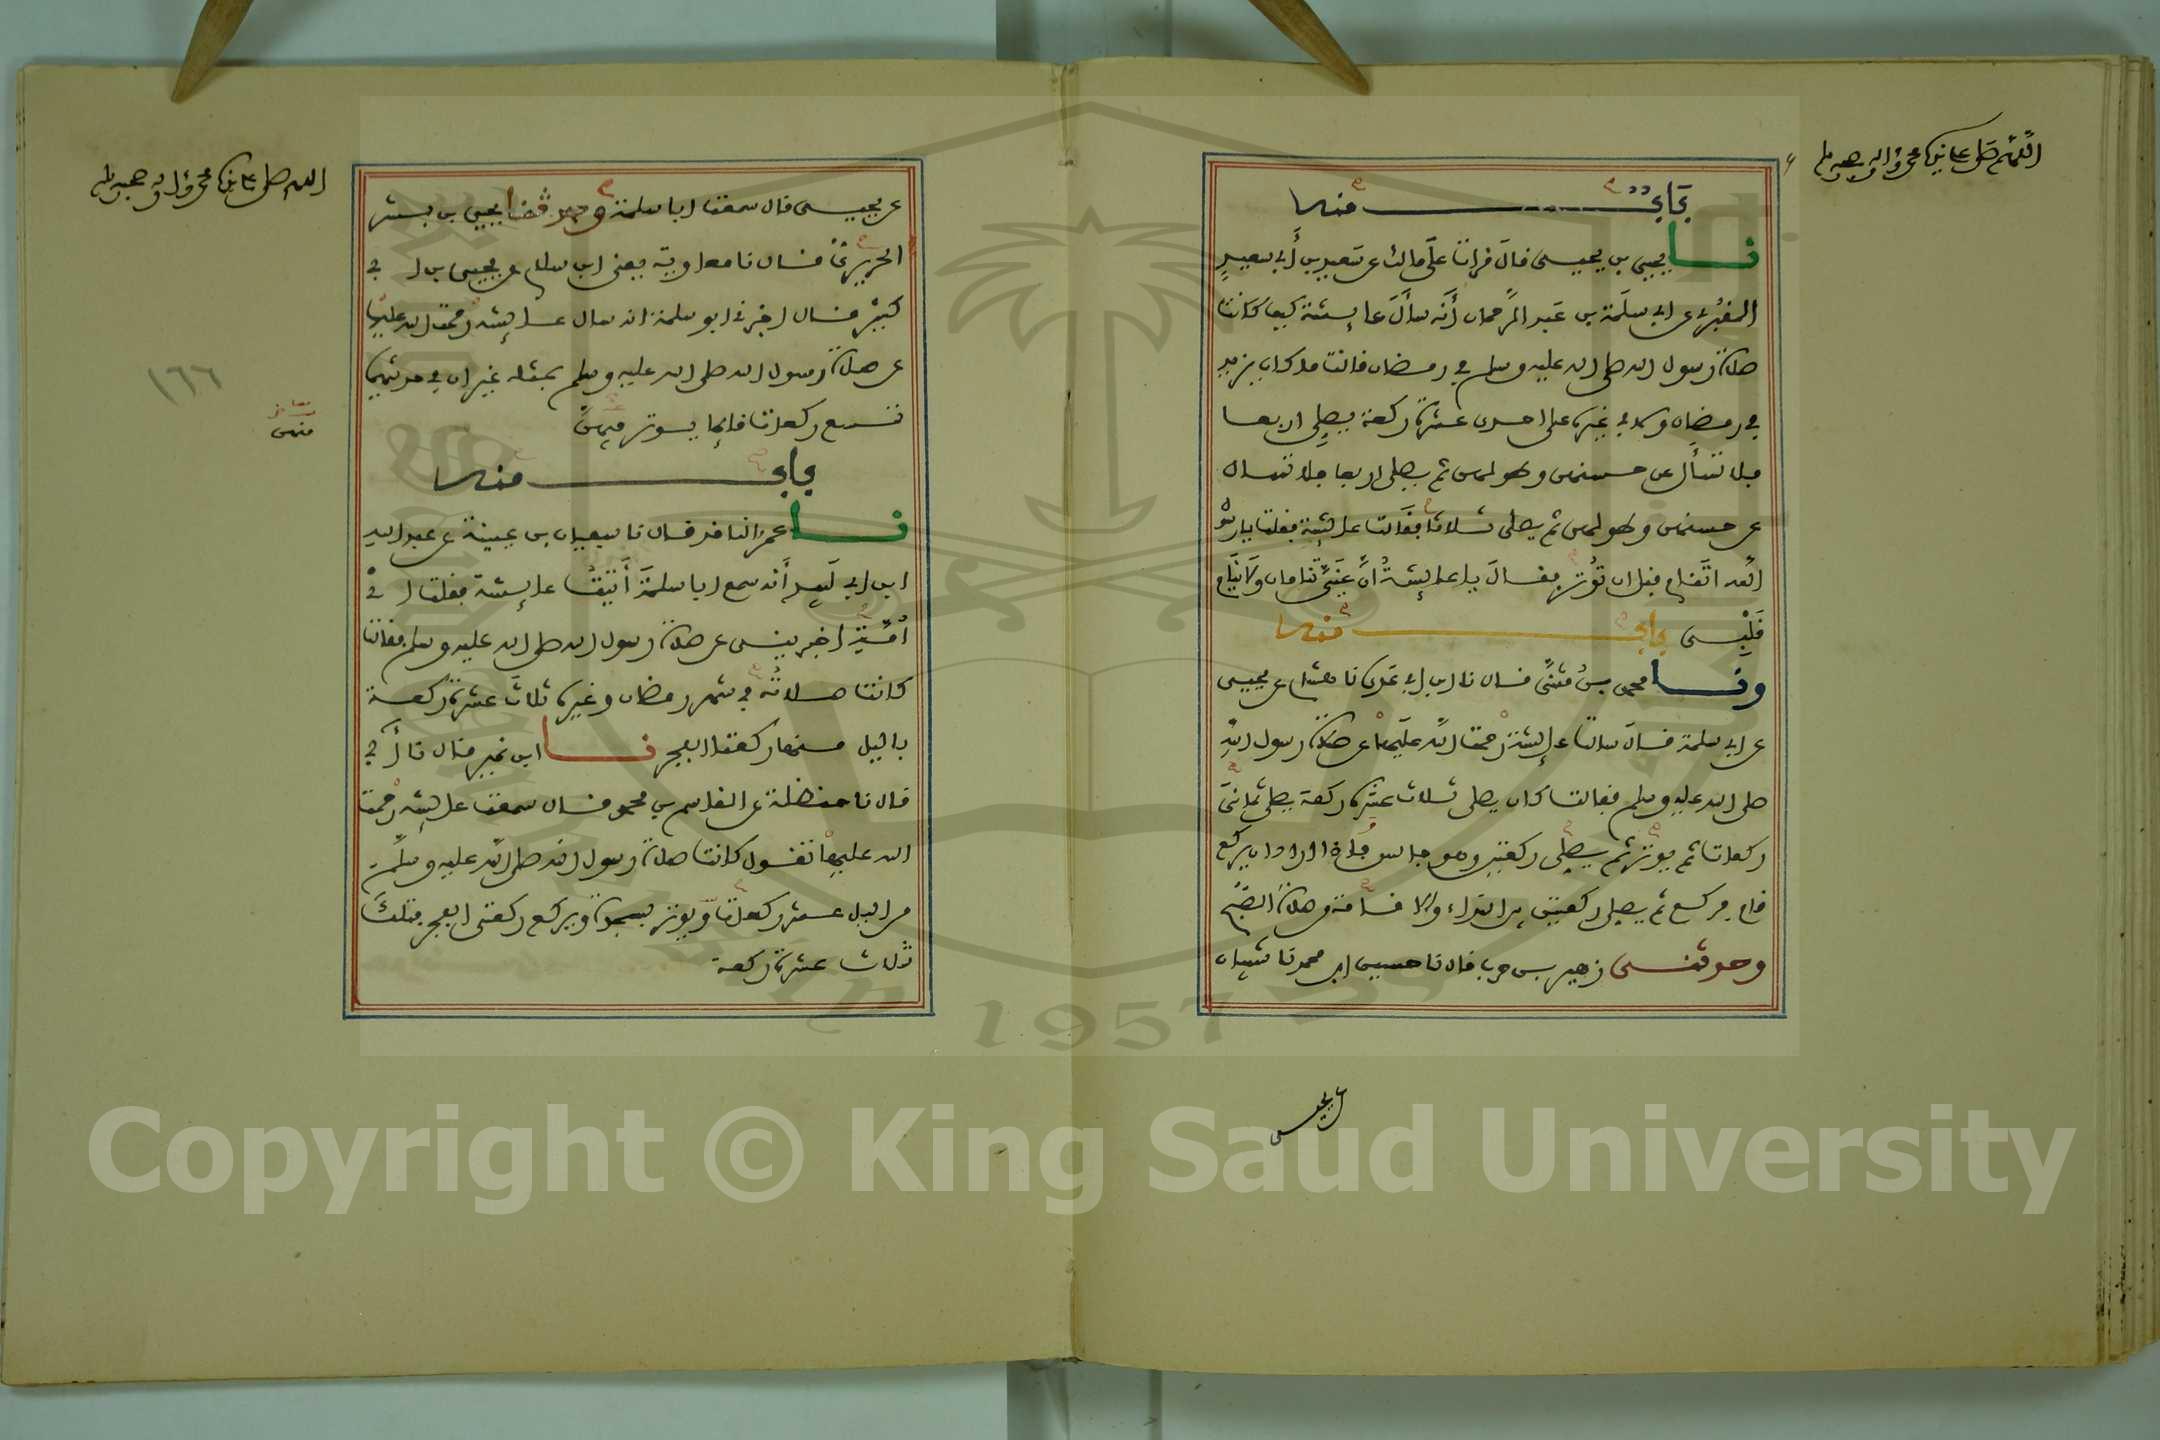 اللهم صل على نبيك محمد وءاله وصحبه وسلم
باب منه
نا يحيى بن يحيى قال قرات على مالك عن سعيد بن أبي سعيد
المقبري عن ابي سلمة بن عبد الرحمان أنه سأل عايشة كيف كانت
صلاة رسول الله صلى الله عليه وسلم في رمضان قالت ما كان يزيد
في رمضان ولا في غيره على احدى عشرة ركعة يصلي اربعا
فلا تسأل عن حسنهن وطولهن ثم يصلي اربعا فلا تسال
عن حسنهن وطولهن ثم يصلي ثلاثا فقالت عايشة فقلت يا رسول
الله اتنام قبل ان توتر فقال يا عايشة ان عيني تنامان ولا ينام
قلبي باب منه
ونا محمد بن مثنى قال نا ابن ابي عدي نا هشام عن يحيى
عن ابي سلمة قال سالت عايشة رحمة الله عليها عن صلاة رسول الله
صلى الله عليه وسلم فقالت كان يصلي ثلاث عشرة ركعة يصلي ثماني
ركعات ثم يوتر ثم يصلي ركعتين وهو جالس فاذا اراد ان يركع
قام فركع ثم يصلي ركعتين بين النداء والاقامة من صلاة الصبح
وحدثني زهير بن حرب قال نا حسين ابن محمد نا شيبان
عن يحيى
اللهم صل على نبيك محمد وءاله وصحبه وسلم
عن يحيى قال سمعت ابا سلمة وحدثنا يحيى بن بشر
الحريري قال نا معاوية يعني ابن سلام عن يحيى بن ابي
كثير قال اخبرني ابو سلمة انه سال عايشة رحمة الله عليها
عن صلاة رسول الله صلى الله عليه وسلم بمثله غير ان في حديثهما
تسع ركعات قايما يوتر فيهن
١٦٦
منهن
باب منه
نا عمرو الناقد قال نا سفيان بن عيينة عن عبد الله
ابن ابي لبيد أنه سمع ابا سلمة أتيت عايشة فقلت اي
أمه اخبريني عن صلاة رسول الله صلى الله عليه وسلم فقالت
كانت صلاته في شهر رمضان وغيره ثلاث عشرة ركعة
بالليل منها ركعتا الفجر نا ابن نمير قال نا أبي
قال نا حنظلة عن القاسم بن محمد قال سمعت عايشة رحمة
الله عليها تقول كانت صلاة رسول الله صلى الله عليه وسلم
من الليل عشر ركعات ويوتر بسجدة ويركع ركعتي الفجر فتلك
ثلاث عشرة ركعة
1957
Copyright © King Saud University